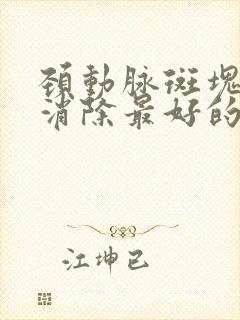 頚動脉斑塊
消除最好的
江坤已